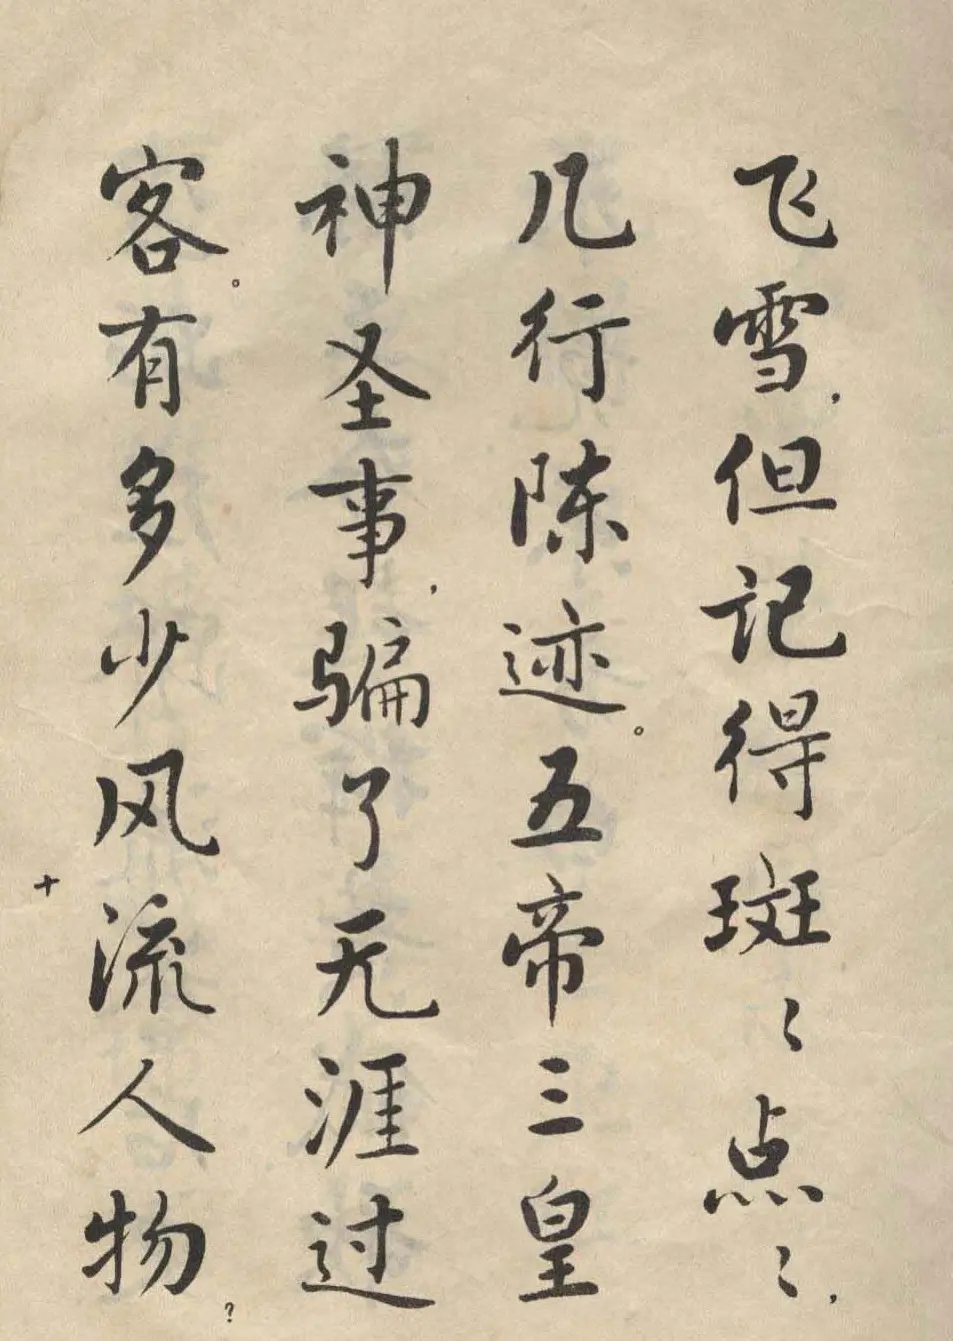 飞雪，但记得斑〻点〻，
几行陈迹。五帝三皇
神圣事，骗了无涯过
客。有多少风流人物？